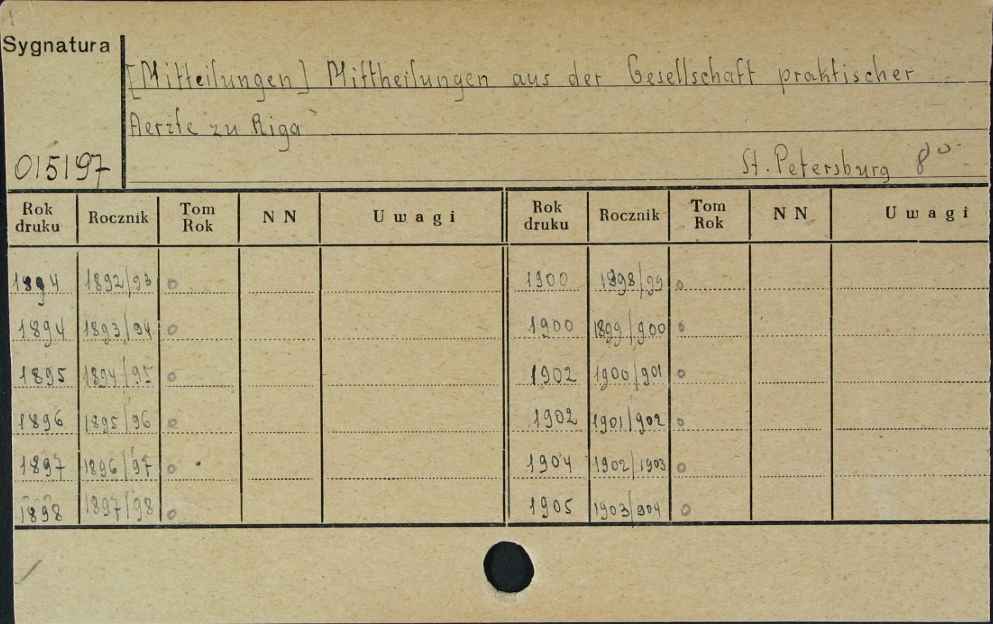 Sygnatura
[Mitteilungen] Mittheilungen aus der Gesellschaft praktischer
Aerzte zu Riga
015197
St. Petersburg 8°
Rok druku Rocznik Tom Rok NN Uwagi Rok druku Rocznik Tom Rok NN Uwagi
1894 1892/93 o 1900 1898/99 o
1894 1893/94 o 1900 1899/900 o
1895 1894/95 o 1902 1900/901 o
1896 1895/96 o 1902 1901/902 o
1897 1896/97 o 1904 1902/1903 o
1898 1897/98 o 1905 1903/904 o